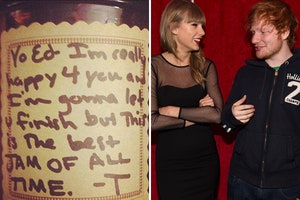 Yo Ed - I'm really
happy 4 you and
I'm gonna let
u finish but This
is the best
JAM OF ALL
TIME. -T
Hollister
2